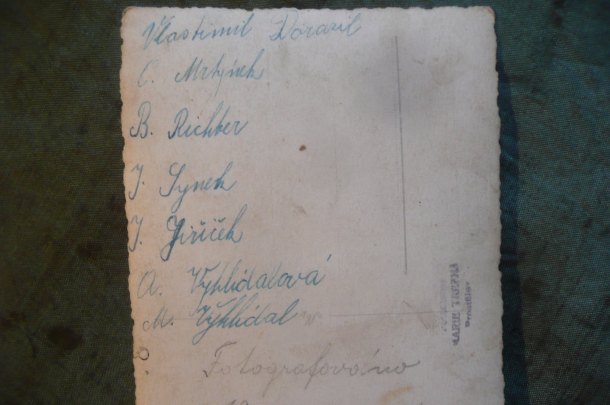 Vlastimil
C. Mrtýnek
B. Richter
J. Synek
J. Jiříček
A. Vyhlídalová
M. Vyhlídal
Fotografováno